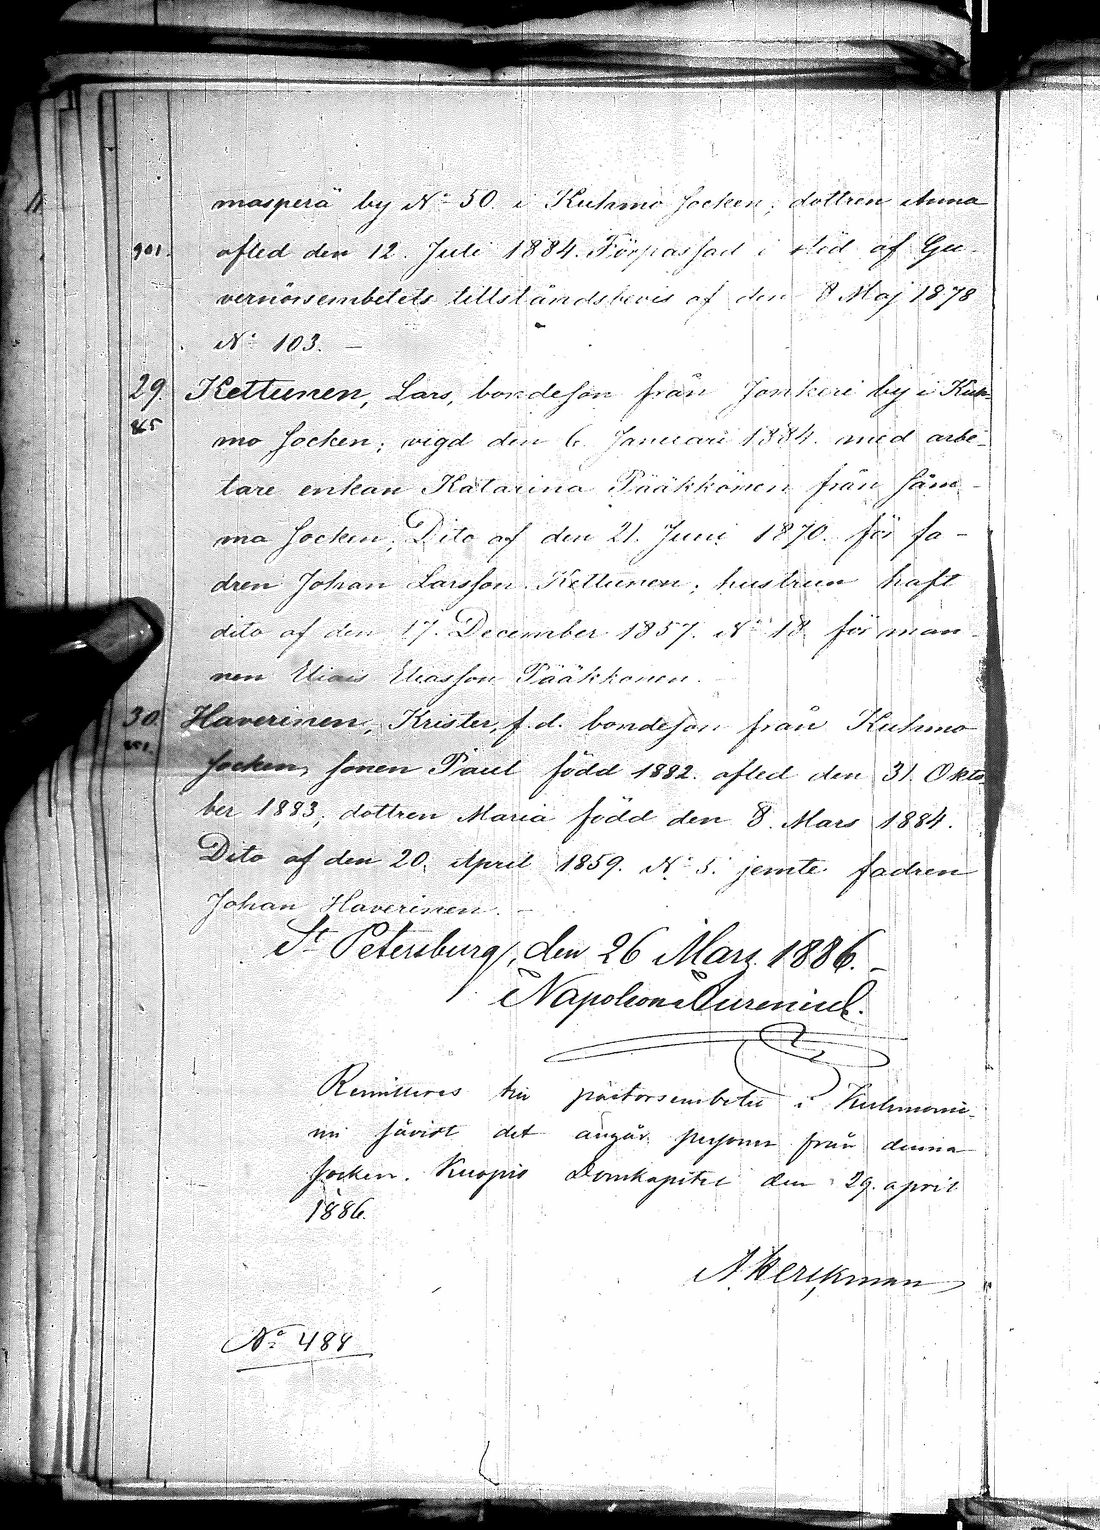 masperä by No 50. i Kuhmo socken; dottren Anna
901. afled den 12. Juli 1884. Förpassad i stöd af Gu-
vernörsembetets tillståndsbevis af den 8 Maj 1878
No 103. —
29. Kettunen, Lars, bondeson från Jonkeri by i Kuh-
mo socken; vigd den 6. Januari 1884. med arbe-
tare enkan Katarina Pääkkönen från sam-
ma socken; Dito af den 21. Juni 1870. för fa-
dren Johan Larsson Kettunen; hustrun haft
dito af den 17. December 1857. No 18 för man-
nen Elias Eliasson Pääkkönen.
30. Haverinen, Krister, f.d. bondeson från Kuhmo
socken, sonen Paul född 1882. afled den 31. Okto
ber 1883; dottren Maria född den 8. Mars 1884.
Dito af den 20. April 1859. No 5. jemte fadren
Johan Haverinen. —
St Petersburg, den 26 Mars 1886. —
Napoleon
Remitteras till pastorsembetet i Kuhmonie-
mi såvidt det angår personer från denna
socken. Kuopio Domkapitel den 29. april
1886.
No 488